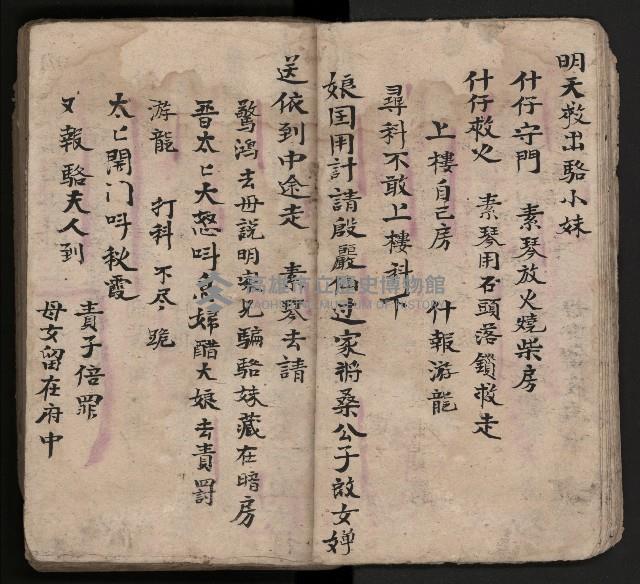 明天救出駱小妹
什仔守門　素琴放火燒柴房
什仔救火　素琴用石頭落鎖救走
上樓自己房　什報游龍
尋科不敢上樓科下
娘囯用計請殷麗 家将桑公子 女婢
送依到中途走　素琴去請
驚鴻去毋説明 兄騙駱妹藏在暗房
晋太匕大怒呌 婦醋大娘去責罸
游龍　打科　不尽　跪
太匕開门呌秋霞
又報駱夫人到
責子倍罪
母女留在府中
高雄市立歷史博物館
KAOHSIUNG MUSEUM OF HISTORY